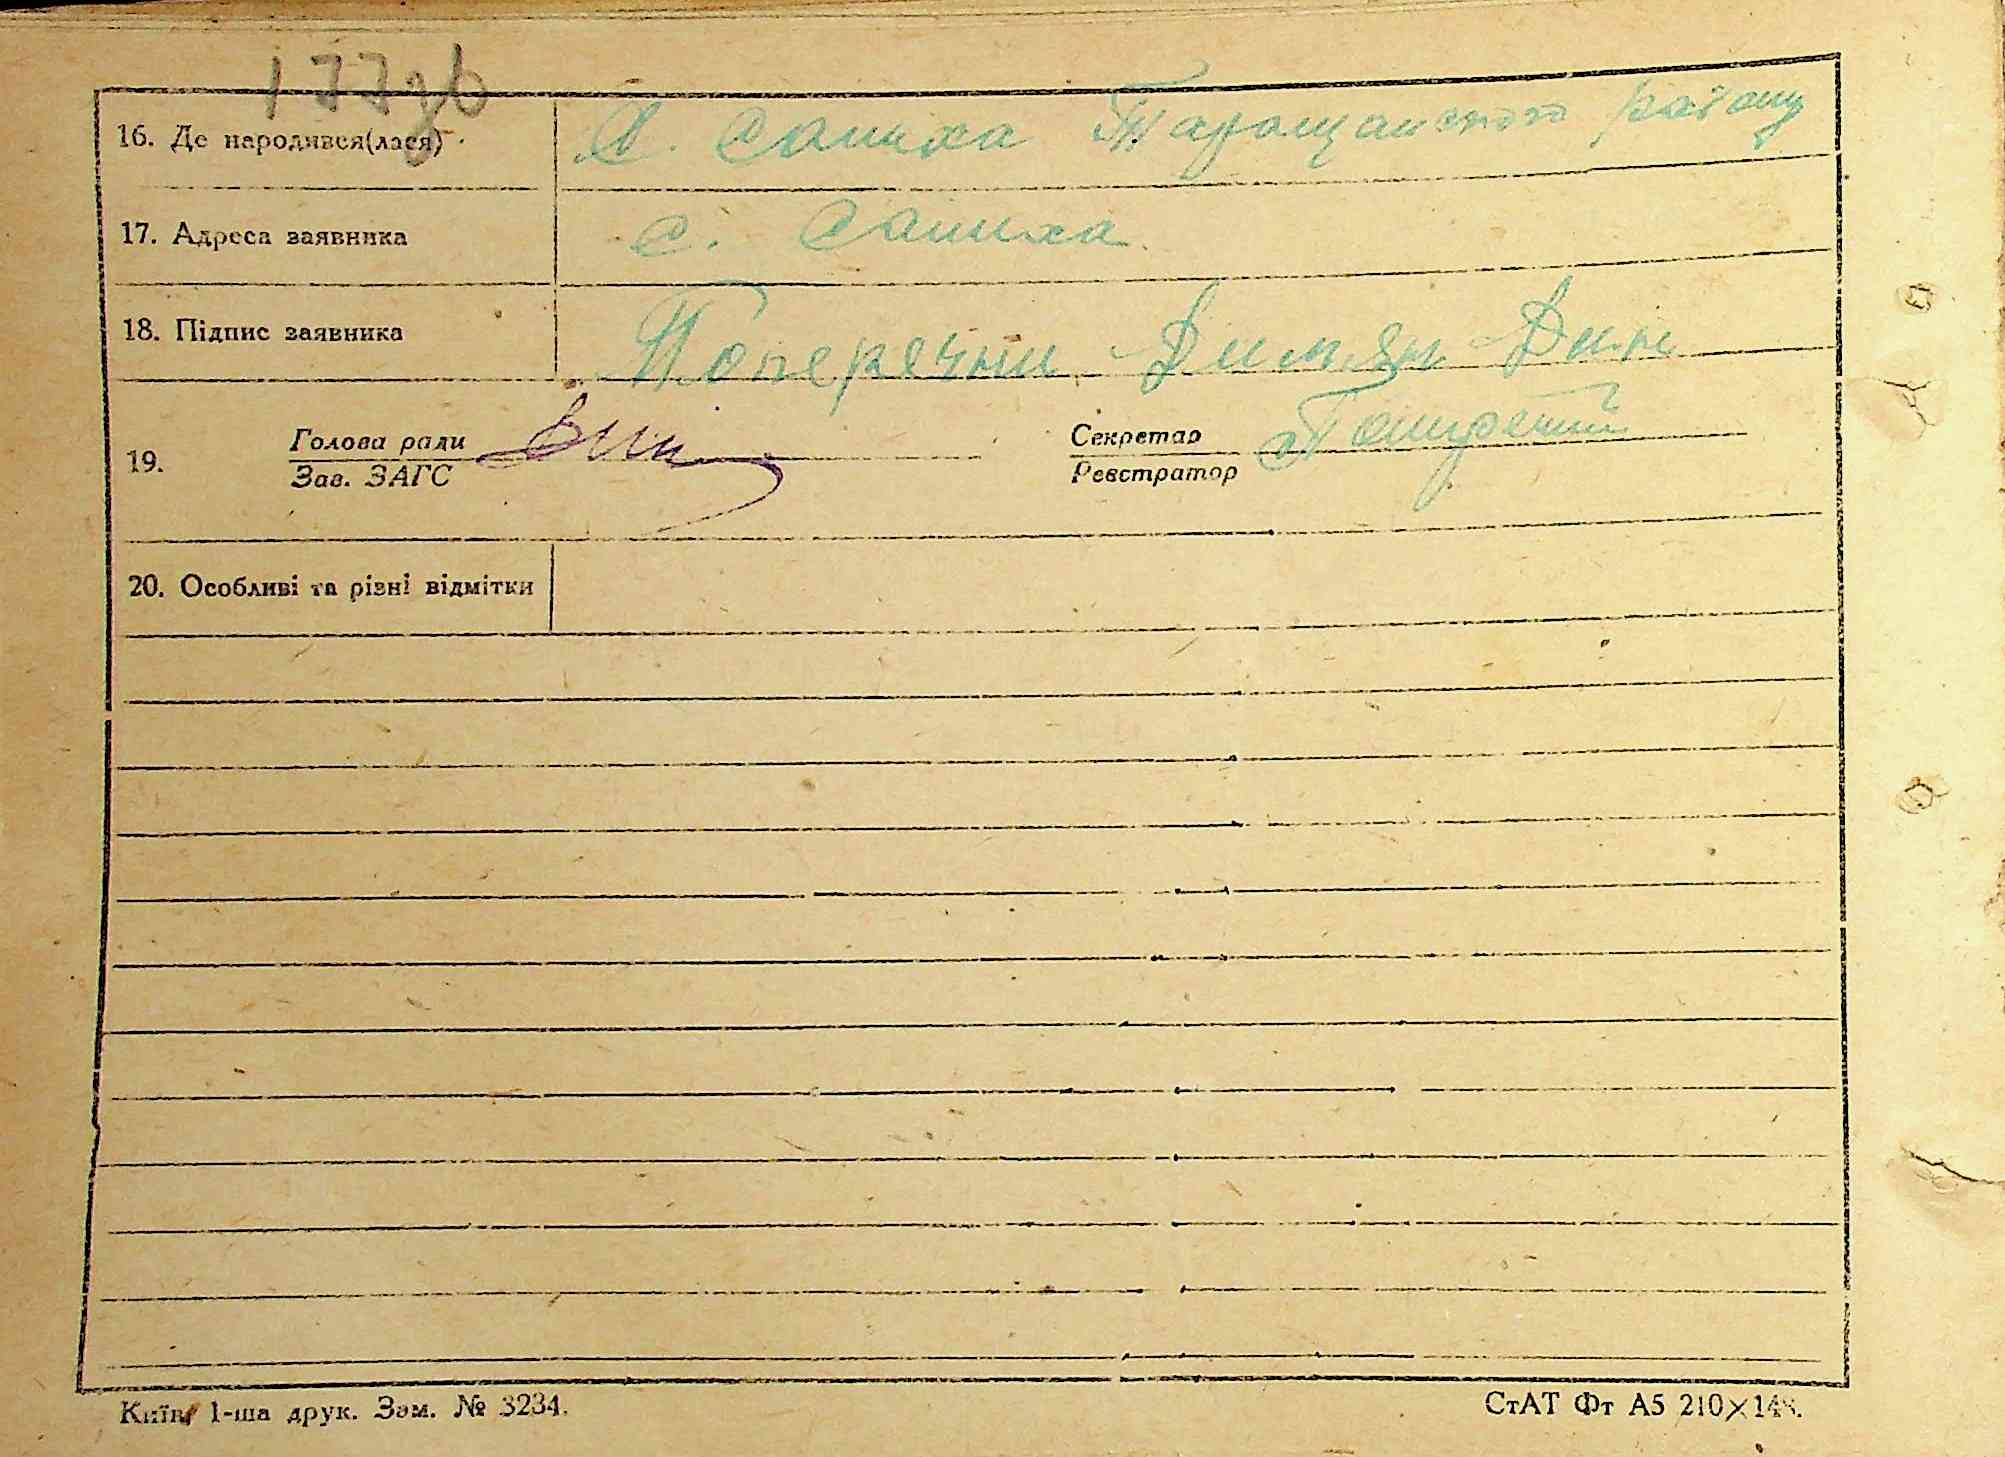 177зв
16. Де народився(лася) С. Саниха Таращанского району
17. Адреса заявника с. Саниха
18. Підпис заявника Поперечни Димян
19. Голова ради
Зав. ЗАГС
Секретар
Реєстратор
20. Особливі та різні відмітки
Київ, 1-ша друк. Зам. № 3234.
СтАТ Фт А5 210×148.